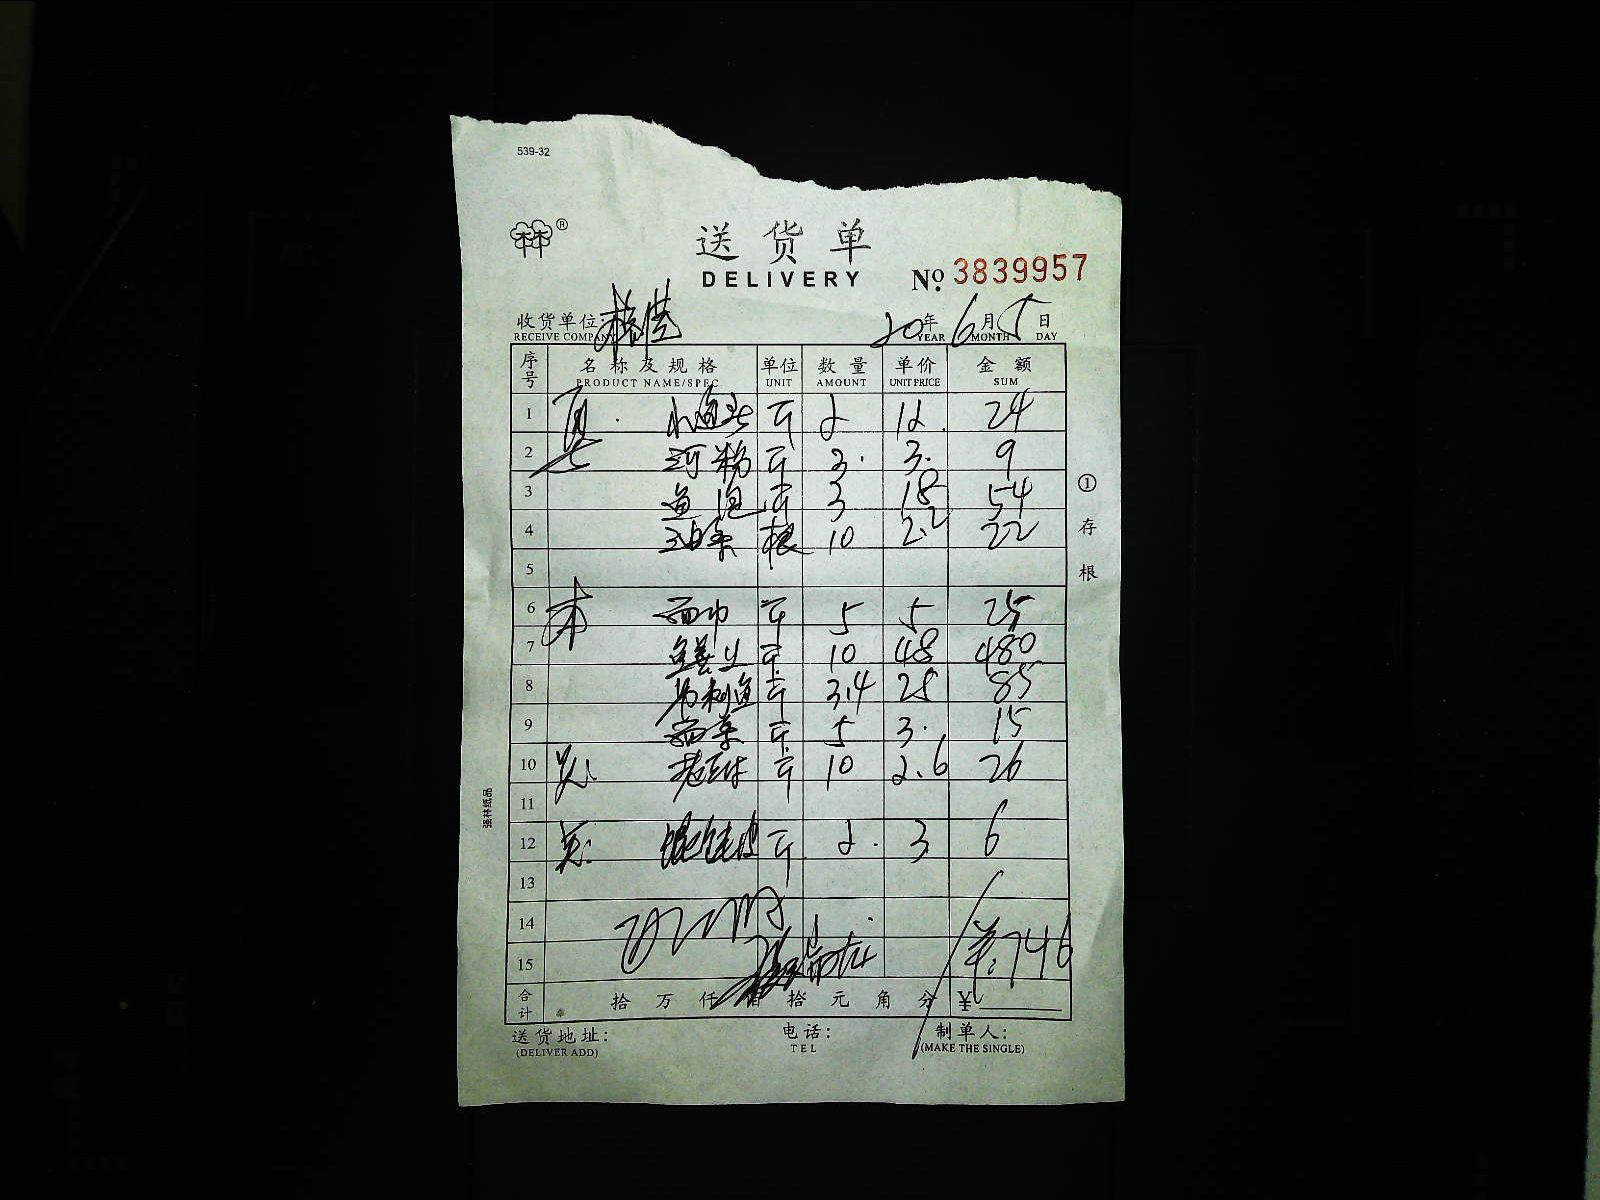 539-32
林®
送货单
DELIVERY
No. 3839957
收货单位:
RECEIVE COMPANY
20年 6月 5日
YEAR MONTH DAY
序号 名称及规格 单位 数量 单价 金额
PRODUCT NAME/SPEC UNIT AMOUNT UNIT PRICE SUM
1 小鱼头 斤 2 12 24
2 河粉 斤 3 3 9
3 鱼泡 斤 3 18 54
4 油条 根 10 2.2 22
5
6 斤 5 5 25
7 斤 10 48 480
8 鱼 斤 3.4 25 85
9 斤 5 3 15
10 斤 10 2.6 26
11
12 馄饨皮 斤 2 3 6
13
14
15 ¥:746
合计 拾 万 仟 佰 拾 元 角 分 ¥
送货地址: 电话: 制单人:
(DELIVER ADD) TEL (MAKE THE SINGLE)
①存根
强林纸品